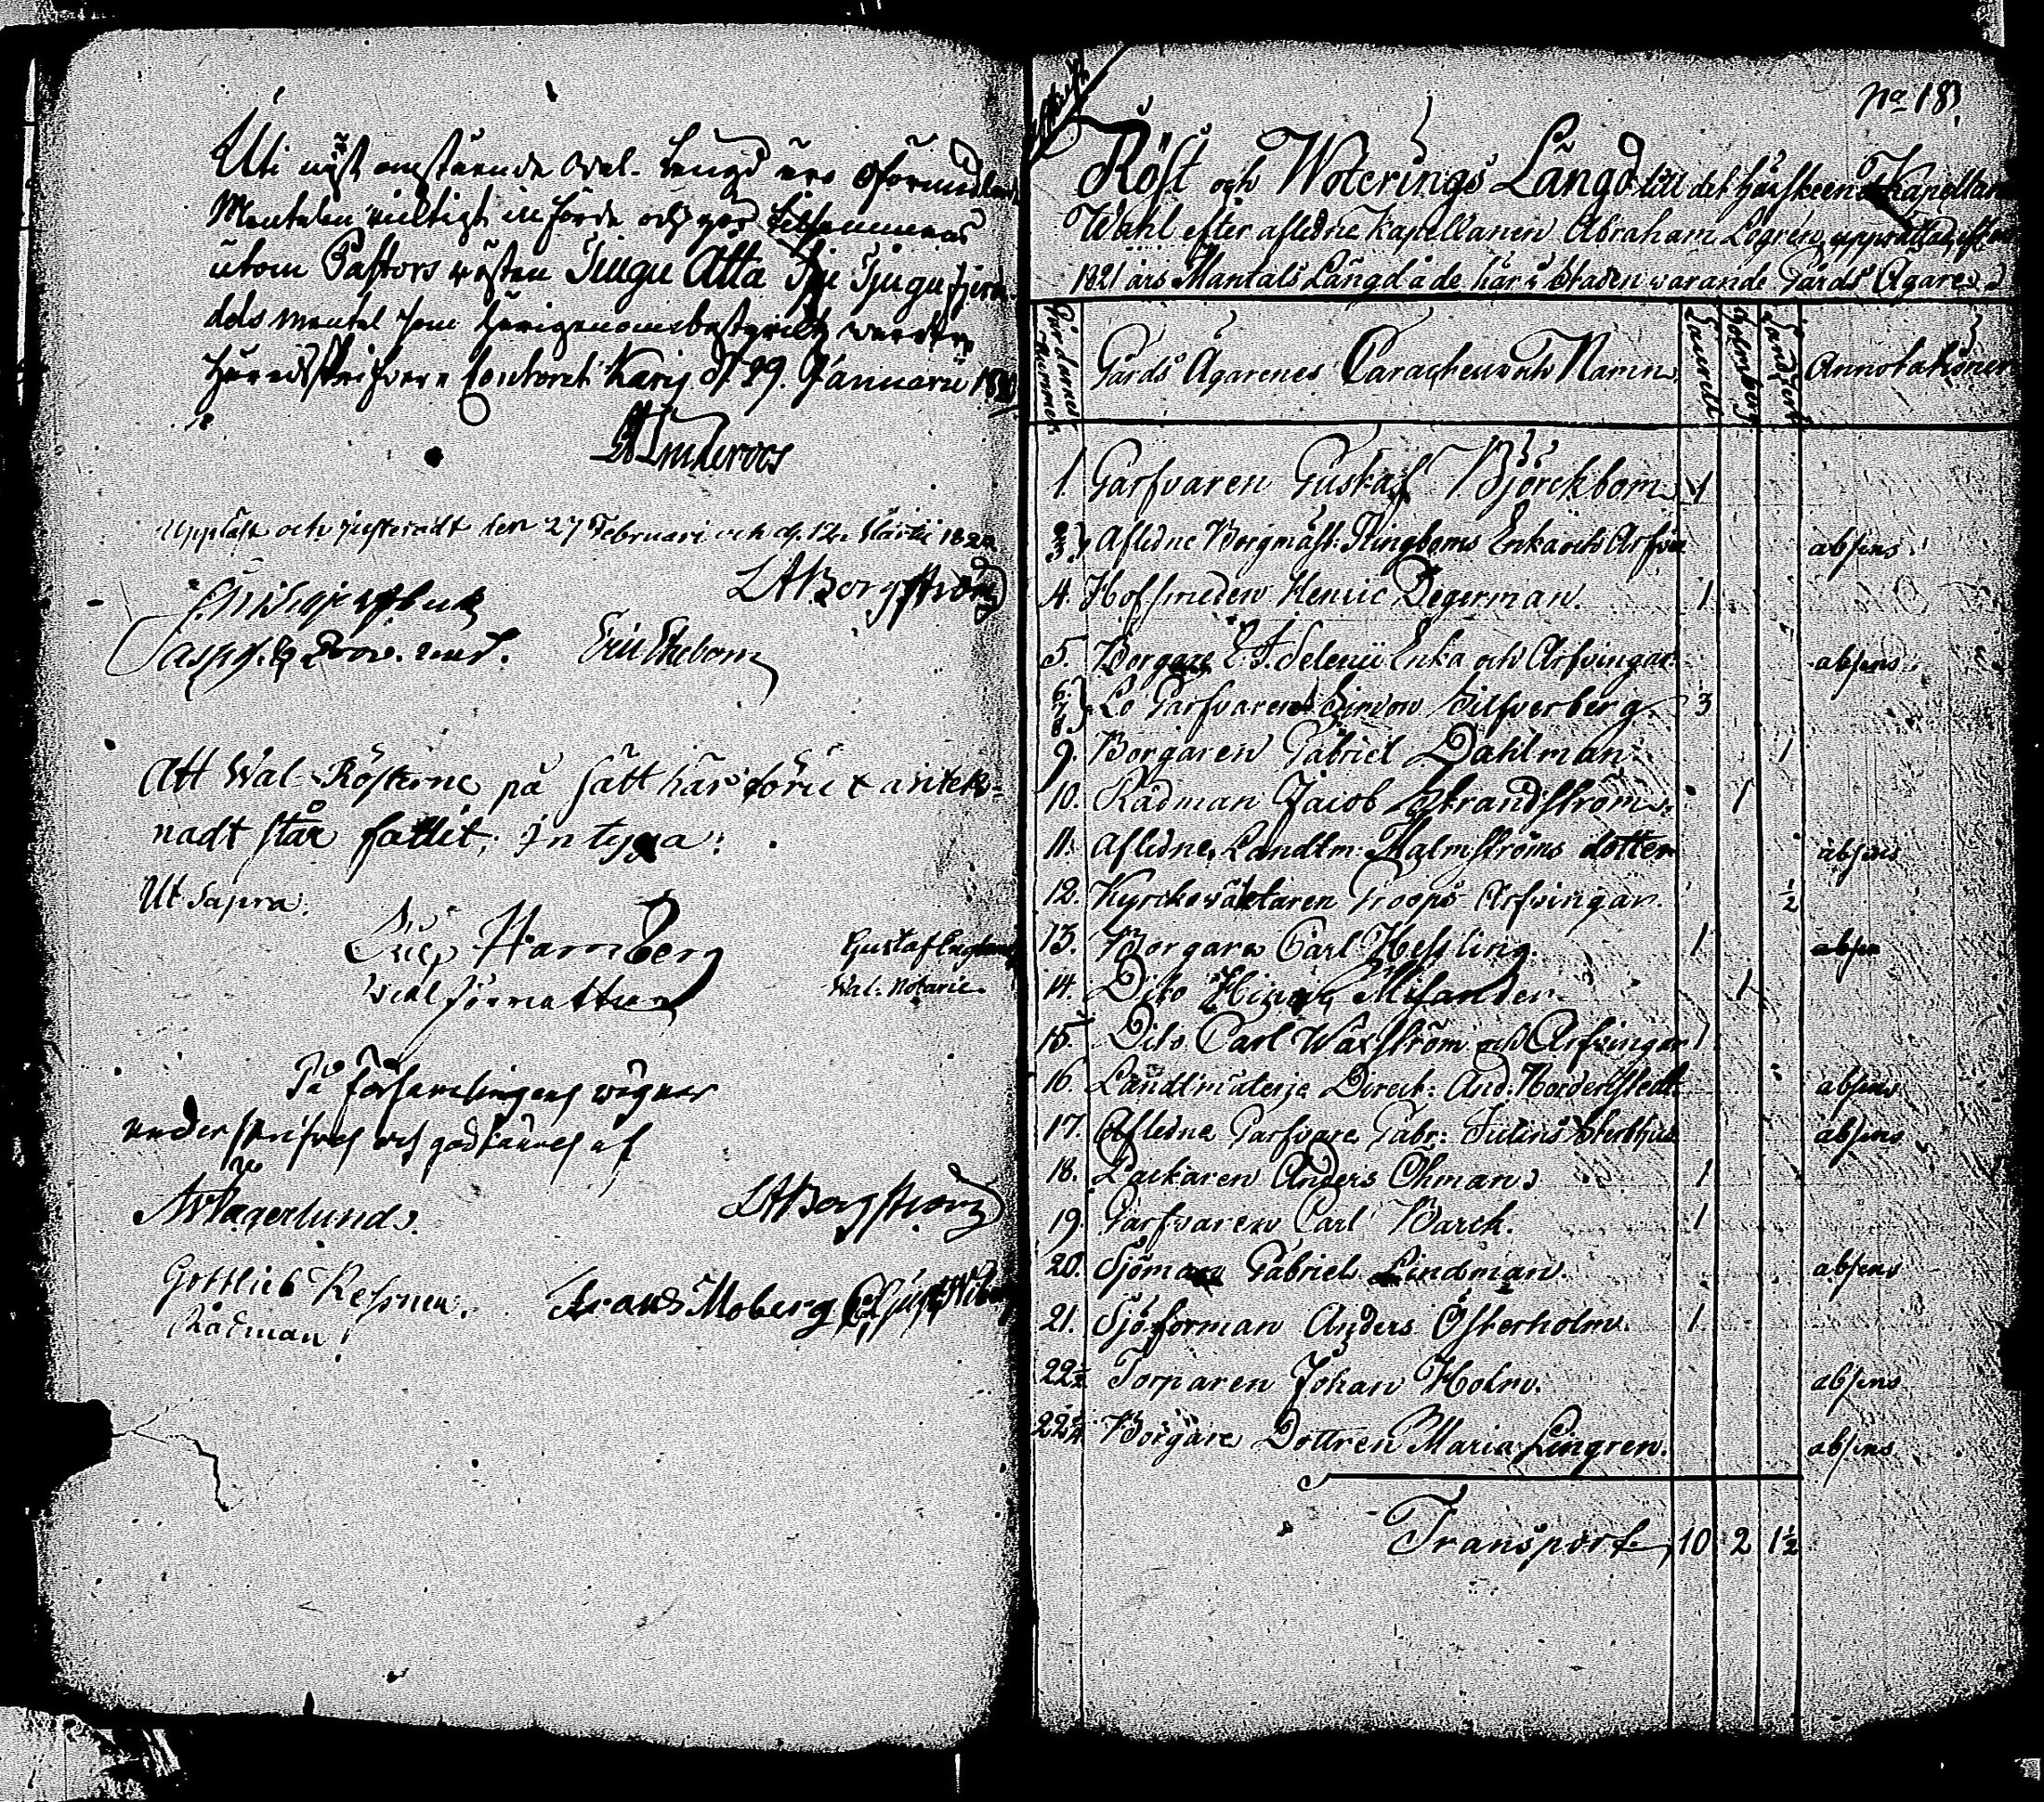 Uti näst omstående Wal-Längd äro Oförmedlade
Mantalen riktigt införde och gör tillsammans
utom Pastors rösten Tiugu Åtta Tju Tjugufjerde-
dels mantal som härigenom bestyrkt warder
Häradsskrifvare Contoret Karis d. 29. Januarii 182
Uppläst och justeradt den 27 Februari och d. 12 Martii 1822
LABorgström
Eric Ekebom
Att Wal-Rösterne på sätt här förut anteck-
nadt står fallit, Intyga:
Ut Supra.
Hamberg
Wal förrättare
Gustaf
Wal-Notarie.
På församlingens wägnar
underskrifves och godkännes af
Lagerlund.
LABorgström
Gottlieb
Rådman.
Frans Moberg
No 18.
Röst och Woterings Längd till det härstädes Kapellans
Wahl efter afledne Kapellanen Abraham Logrén, upprättad efter
1821 års Mantals Längd å de här i Staden warande Gårds Ägare.
Gårdarnes Nummer.
Gårds Ägarenes Caracter och Namn.
Annotationer
1. Garfvaren Gustaf Björckbom 1
2 3 Afledne Borgmäst: Klingboms Enka och Arfv absens.
4. Hofsmeden Henric Degerman. 1
5. Borgare Enka och Arfvingar absens.
6. 7 8 Lo Garfvaren Simon Silfverberg. 3
9. Borgaren Gabriel Dahlman. 1
10. Rådman Jacob Strandström. 1
11. Afledne Landtm. Malmströms dotter absens
12. Kyrkowäktaren Troops Arfvingar. ½
13. Borgare Carl Hessling. 1
14. Dito Misander 1
15. Dito Carl Waxström och Arfvingar 1
16. Landtmäterje Direct: And: Nordenstedt absens
17. Afledne Garfvare Gabr: Sterbhus absens
18. Packaren Anders Öhman. 1
19. Garfvaren Carl Barck. 1
20. Sjöman Gabriel Lindman. absens
21. Sjöforman Anders Österholm. 1
22½ Torparen Johan Holm. absens
22¼ Borgare Dottren Maria Lingren. absens
Transport 10 2 1½